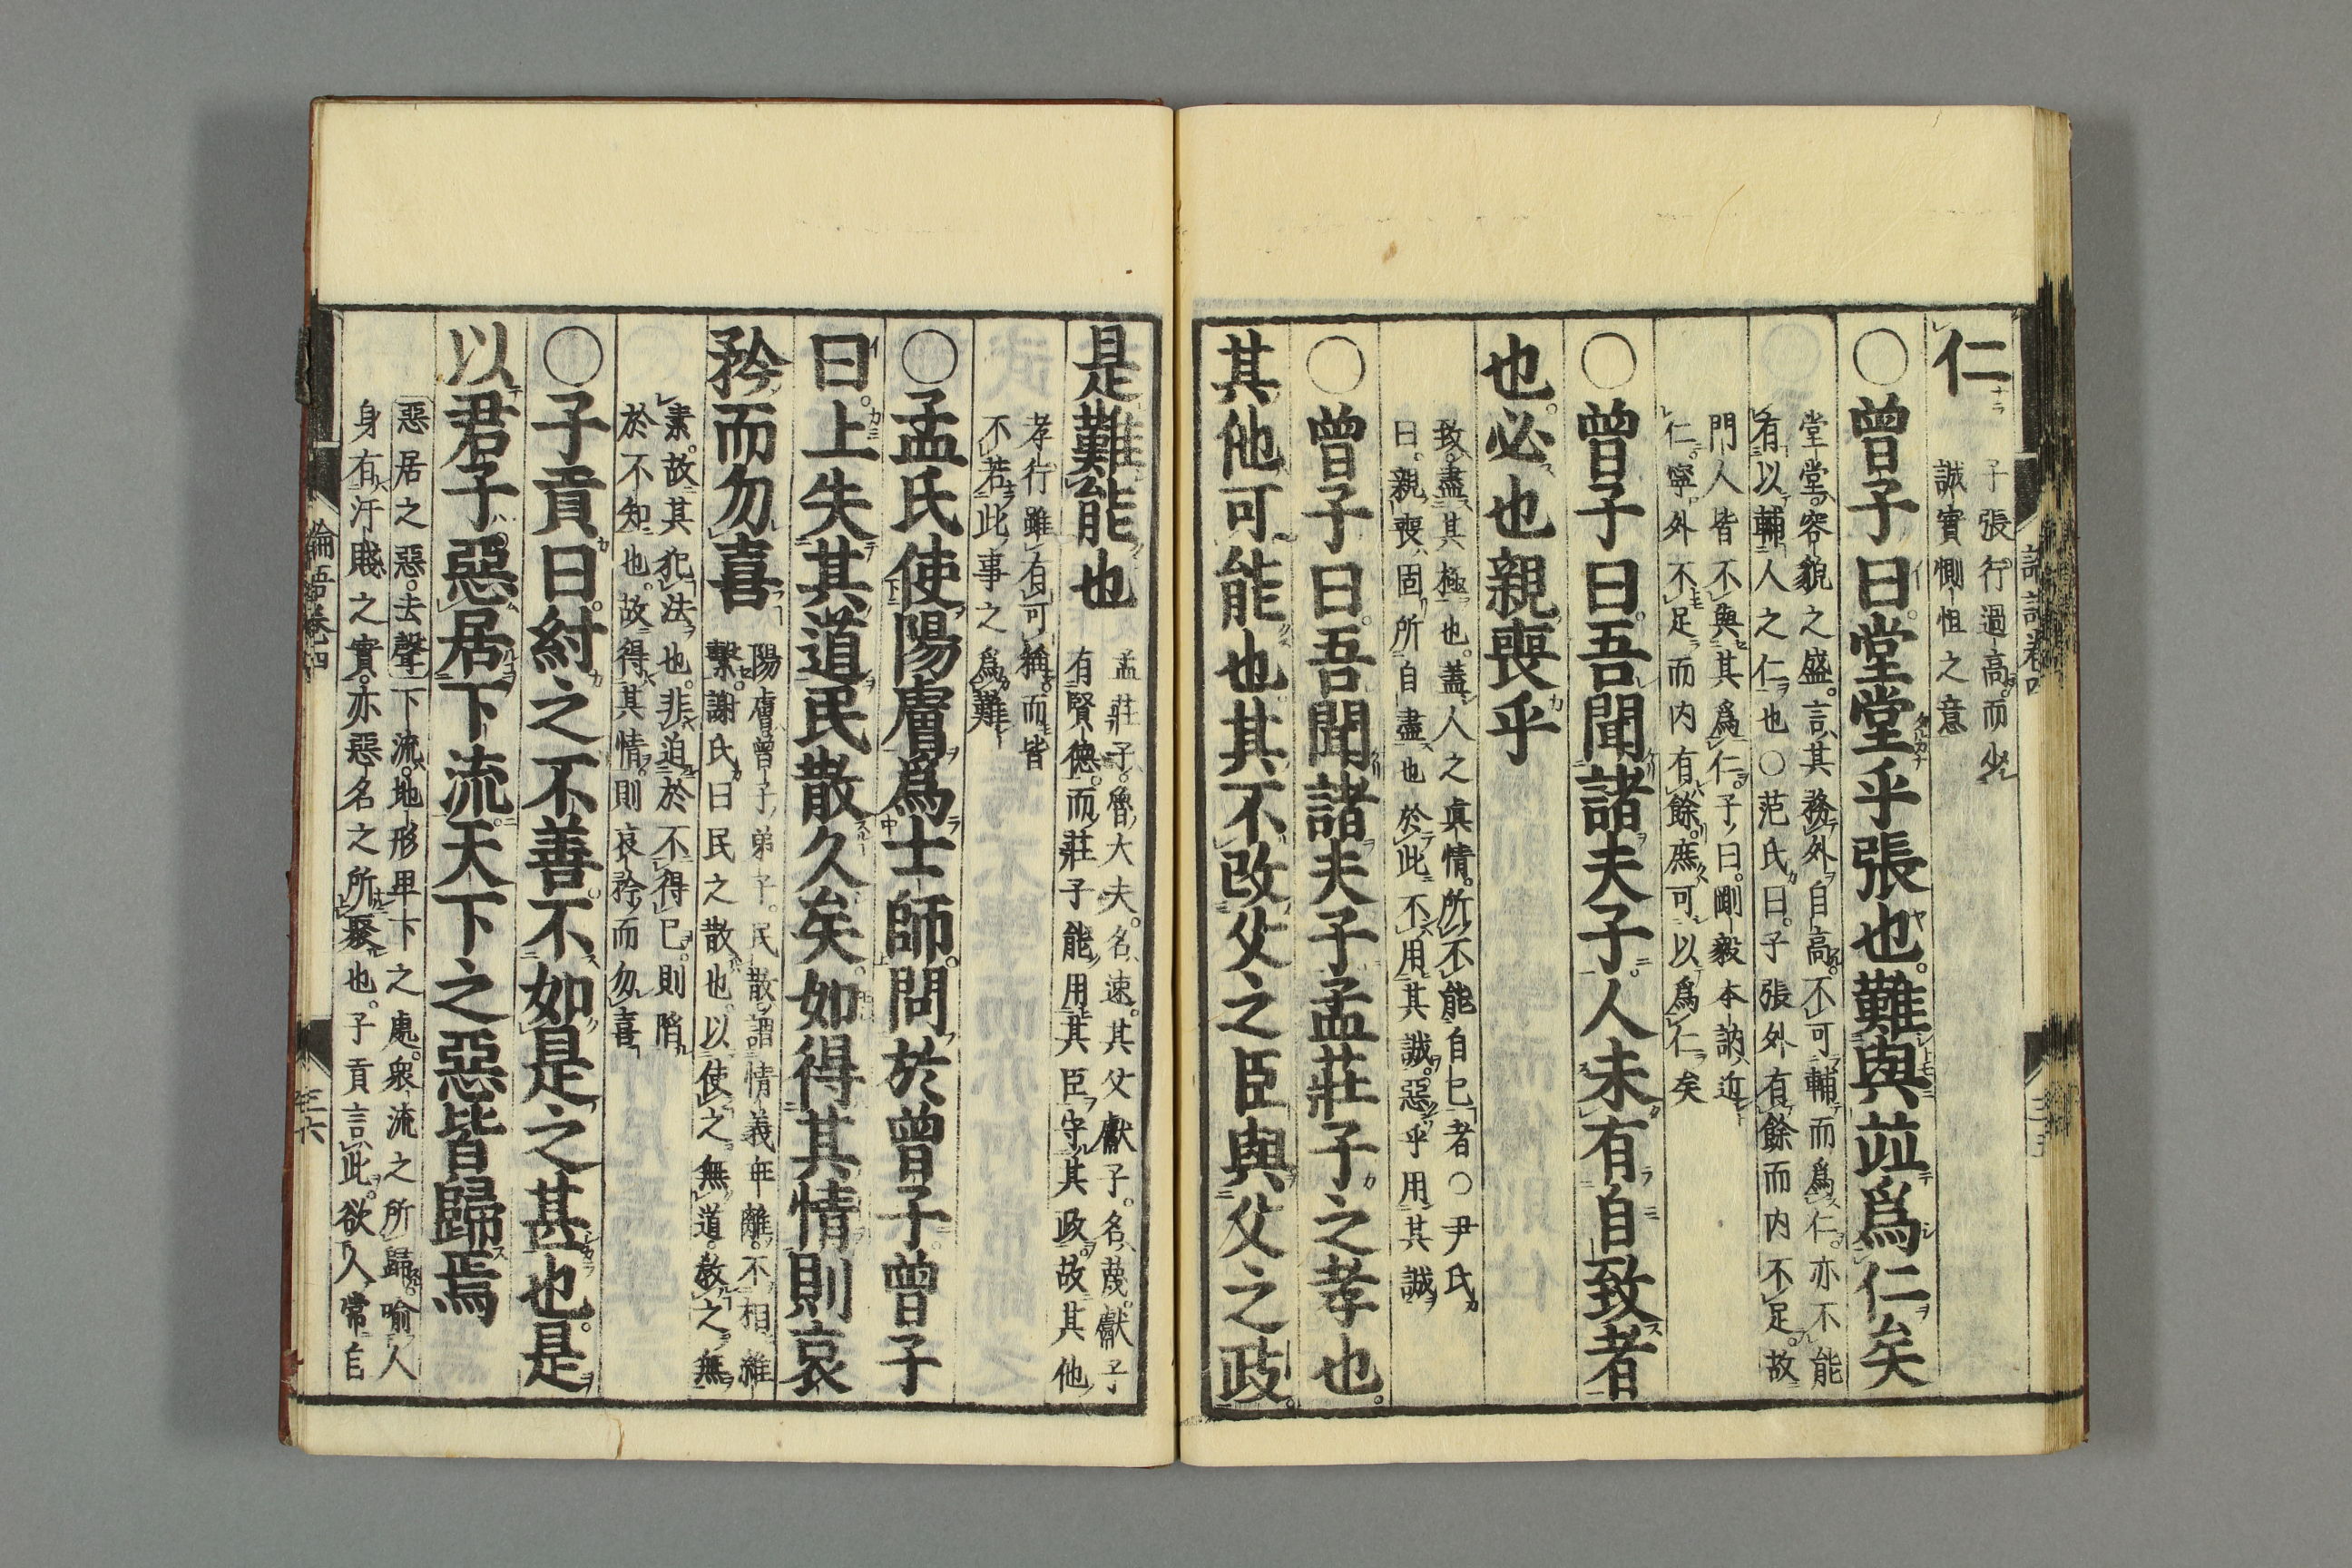 仁
子張行過高而少
誠實惻怛之意
○曾子曰堂堂乎張也難與並爲仁矣
堂堂容貌之盛言其務外自高不可輔而爲仁亦不能
有以輔人之仁也○范氏曰子張外有餘而内不足故
門人皆不與其爲仁子曰剛毅木訥近
仁寧外不足而内有餘庶可以爲仁矣
○曾子曰吾聞諸夫子人未有自致者
也必也親喪乎
致盡其極也蓋人之眞情所不能自已者○尹氏
曰親喪固所自盡也於此不用其誠惡乎用其誠
○曾子曰吾聞諸夫子孟莊子之孝也
其他可能也其不改父之臣與父之政
是難能也
孟莊子魯大夫名速其父獻子名蔑獻子
有賢德而莊子能用其臣守其政故其他
孝行雖有可稱而皆
不若此事之爲難
○孟氏使陽膚爲士師問於曾子曾子
曰上失其道民散久矣如得其情則哀
矜而勿喜
陽膚曾子弟子民散謂情義乖離不相維
繫謝氏曰民之散也以使之無道教之無
素故其犯法也非迫於不得已則陷
於不知也故得其情則哀矜而勿喜
○子貢曰紂之不善不如是之甚也是
以君子惡居下流天下之惡皆歸焉
惡居之惡去聲下流地形卑下之處衆流之所歸喻人
身有汙賤之實亦惡名之所聚也子貢言此欲人常自
論語卷四
三十六